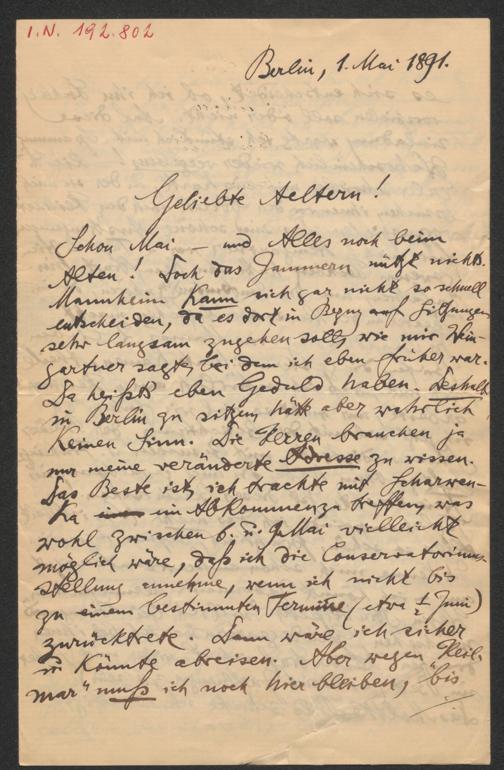 I.N. 192.802
Berlin, 1. Mai 1891.
Geliebte Aeltern!
Schon Mai – und Alles noch beim
Alten! Doch das Jammern nützt nichts.
Mannheim kann sich gar nicht so schnell
entscheiden, da es dort in Bezug auf Sitzungen
sehr langsam zugehen soll, wie mir Wein-
gartner sagte, bei dem ich eben früher war.
Da heißt's eben Geduld haben. Deshalb
in Berlin zu sitzen, hätte aber wahrlich
keinen Sinn. Die Herren brauchen ja
nur meine veränderte Adresse zu wissen.
Das Beste ist, ich trachte mit Scharwen-
ka ein Abkommen zu treffen, was
wohl zwischen 6. u. 9. Mai vielleicht
möglich wäre, daß ich die Conservatoriums-
stellung annehme, wenn ich nicht bis
zu einem bestimmten Termine (etwa 1 Juni)
zurücktrete. Dann wäre ich sicher
u. könnte abreisen. Aber wegen "Heil-
mar" muß ich noch hier bleiben, "bis